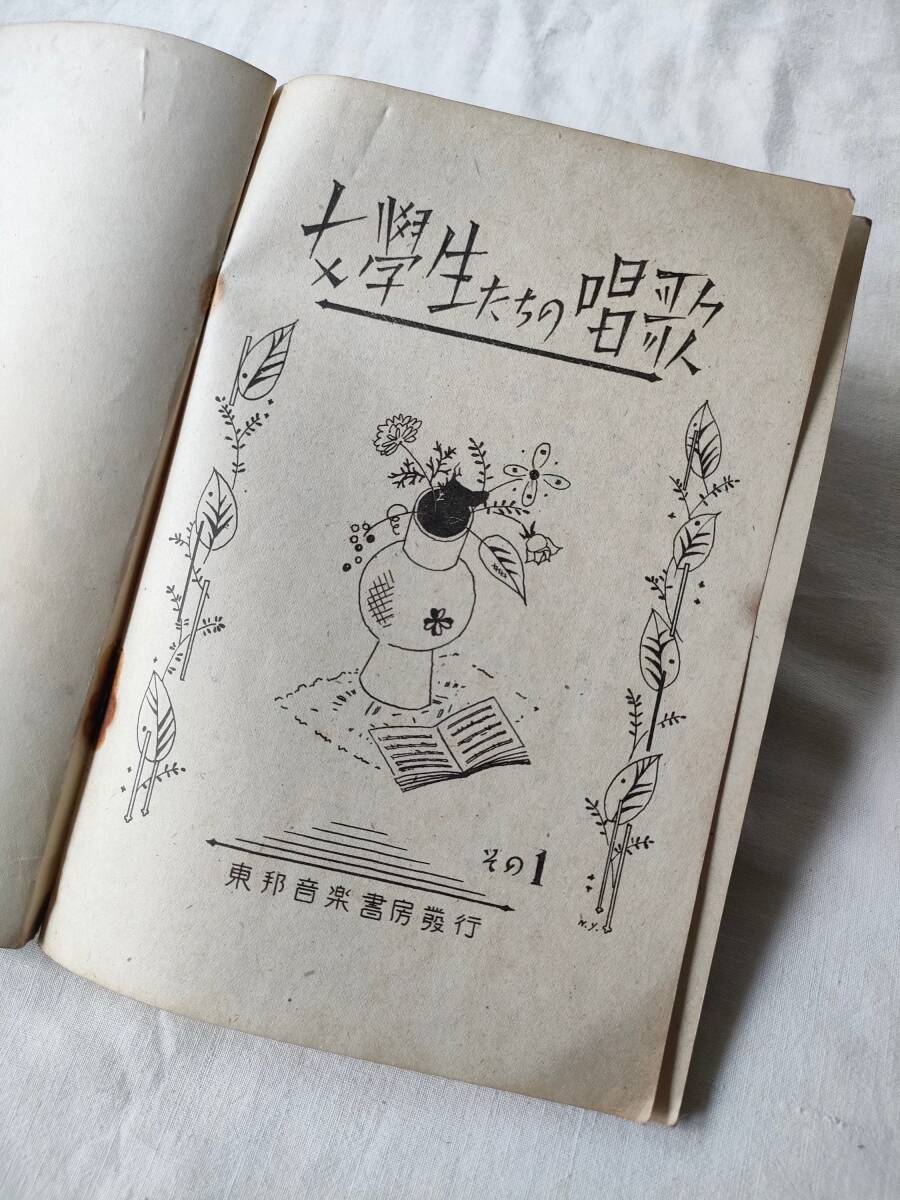 女學生たちの唱歌
その1
東邦音楽書房發行
N.Y.